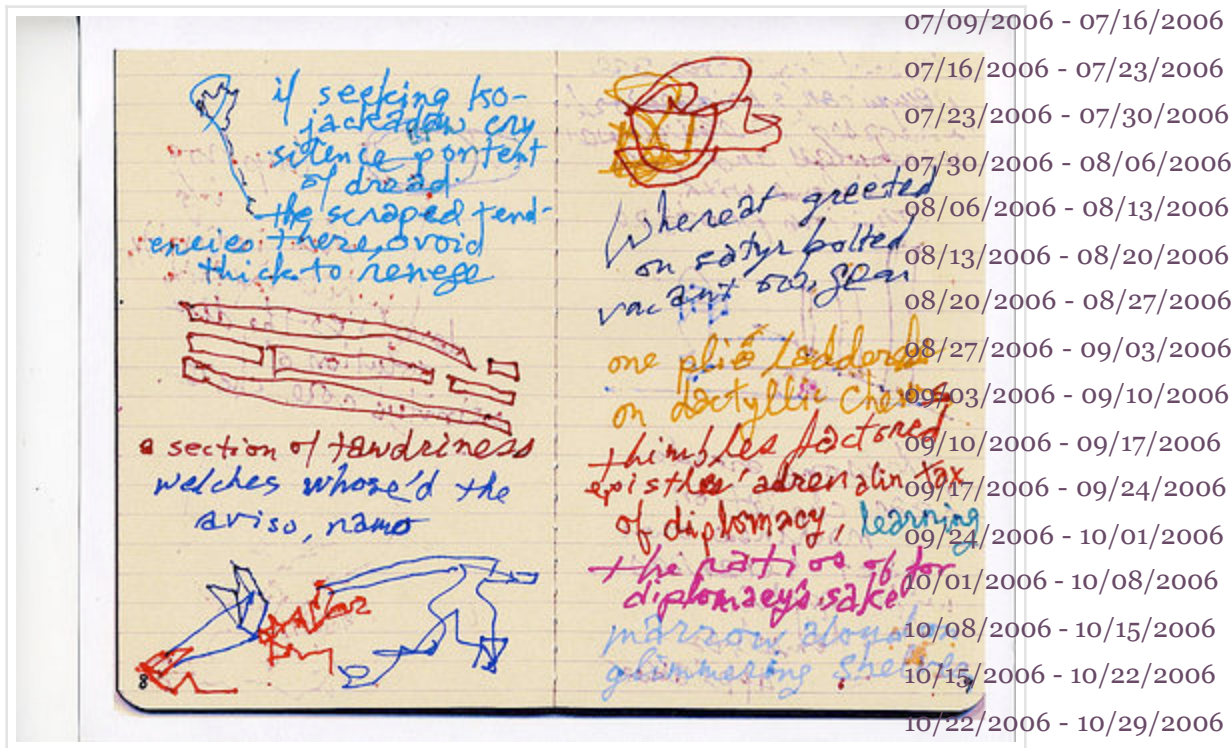 if seeking
jackadaw cry
silence portent
of dread.
the scraped tend-
encies there, ovoid
thick to renege
a section of tawdriness
welches whose'd the
aviso, name
8
Whereat greeted
on satyr bolted
vacaint
one plié
on dactyllic
thimbles factored
adrenalin tax
of diplomacy, learning
the ratios of for
diplomacy's sake
marrow
glimmering
07/09/2006 - 07/16/2006
07/16/2006 - 07/23/2006
07/23/2006 - 07/30/2006
07/30/2006 - 08/06/2006
08/06/2006 - 08/13/2006
08/13/2006 - 08/20/2006
08/20/2006 - 08/27/2006
08/27/2006 - 09/03/2006
09/03/2006 - 09/10/2006
09/10/2006 - 09/17/2006
09/17/2006 - 09/24/2006
09/24/2006 - 10/01/2006
10/01/2006 - 10/08/2006
10/08/2006 - 10/15/2006
10/15/2006 - 10/22/2006
10/22/2006 - 10/29/2006